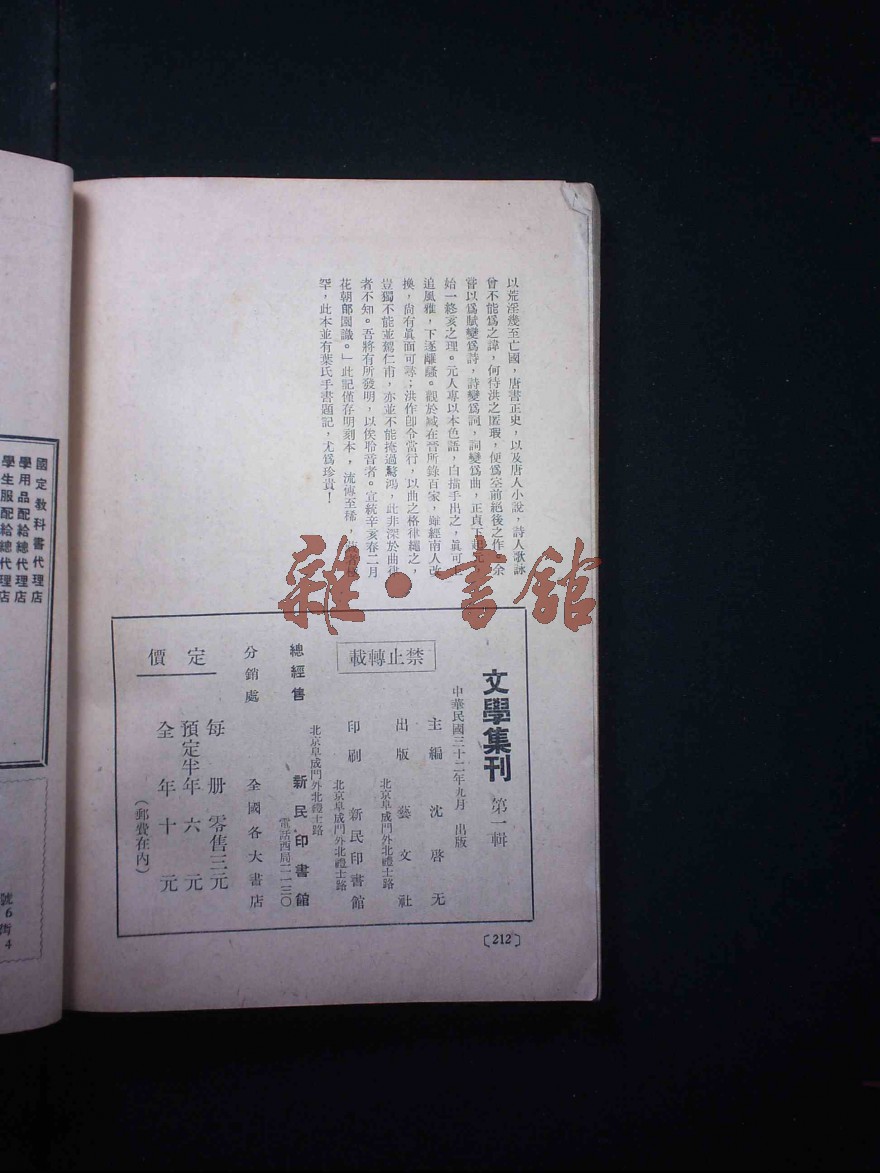 以荒淫幾至亡國，唐書正史，以及唐人小說，詩人歌詠
曾不能爲之諱，何待洪之匿瑕，便爲空前絕後之作。余
嘗以爲賦變爲詩，詩變爲詞，詞變爲曲，正貞下起元，
始一終亥之理。元人專以本色語，白描手出之，眞可上
追風雅，下逐離騷。觀於臧在晉所錄百家，雖經南人改
換，尙有眞面可尋；洪作卽令當行，以曲之格律繩之，
豈獨不能並駕仁甫，亦並不能掩過驚鴻，此非深於曲律
者不知。吾將有所發明，以俟聆音者。宣統辛亥春二月
花朝郋園識。」此記僅存明刻本，流傳至稀，
罕，此本並有葉氏手書題記，尤爲珍貴！
雜·書館
文學集刊 第一輯
中華民國三十二年九月 出版
主編 沈啓无
出版 藝文社
北京阜成門外北禮士路
印刷 新民印書館
北京阜成門外北禮士路
禁止轉載
總經售 新民印書館
北京阜成門外北禮士路
電話西局二一三〇
分銷處 全國各大書店
定價
每册零售三元
預定半年六元
全年十元
（郵費在內）
〔212〕
國定教科書代理店
學用品配給總代理店
學生服配給總代理店
號6
街4